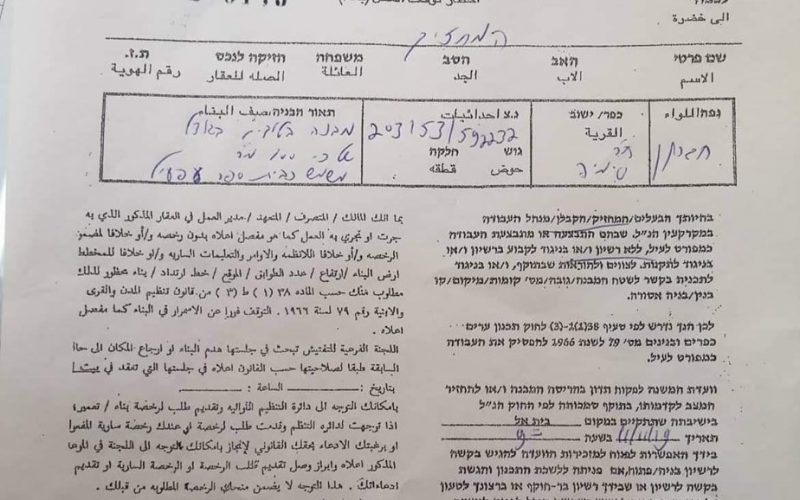 الى حضرة
המחזיק
שם פרטי האב הסב משפחה חזיקה לנכס ת.ז.
الاسم الاب الجد العائلة الصله للعقار رقم الهوية
נפה/اللواء כפר/ישוב נ.צ احداثيات תאור הבניה/صيف البناء
القرية 203153/592232
חברון גוש חלקה
حوض قطعه
מבנה
משמש כבית ספר פעיל
בהיותך הבעלים/המחזיק/הקבלן/מנהל העבודה
במקרקעין הנ"ל שבהם התבצעה או מתבצעת העבודה
כמפורט לעיל, ללא רשיון ו/או בניגוד לקבוע ברשיון ו/או
בניגוד לתקנות, לצווים ולהוראות שבתוקף, ו/או בניגוד
לתכנית בקשר לשטח המבנה/גובה/מס' קומות/מיקום/קו
בנין/בניה אסורה.
לכן הנך נדרש לפי סעיף 38(1)-(3) לחוק תכנון ערים
כפרים ובנינים מס' 79 לשנת 1966 להפסיק את העבודה
כמפורט לעיל.
וועדת המשנה לפקוח תדון בהריסת המבנה ו/או להחזיר
המצב לקדמותו, בתוקף סמכותה לפי החוק הנ"ל
בישיבתה שתתקיים במקום בית אל
תאריך בשעה
בידך האפשרות לפנות למזכירות הוועדה להגיש בקשה
לרשיון בניה/פתוח, אם פנית ללשכת התכנון והגשת
בקשה לרשיון או שבידך רשיון בר-תוקף או ברצונך לטעון
بما انك المالك / المتصرف / المتعهد / مدير العمل في العقار المذكور الذي به
جرت او تجري به العمل كما هو مفصل اعلاه بدون رخصه و/أو خلافا للمضمن
الرخصه و/أو خلافا للانظمه والاوامر والتعليمات السارية و/أو خلافا للمخطط
ارض البناء /ارتفاع/ عدد الطوابق / الموقع / خط ارتداد / بناء محظور لذلك
مطلوب منك حسب الماده ٣٨ (١) ط (٣) من قانون تنظيم المدن والقرى
والابنية رقم ٧٩ لسنة ١٩٦٦. التوقف فورا عن الاسمرار في البناء كما مفصل
اعلاه.
اللجنة الفرعية للتفتيش تبحث في جلستها هدم البناء او ارجاع المكان الى حالته
السابقة طبقا لصلاحيتها حسب القانون اعلاه في جلستها التي تعقد في
بتاريخ: الساعة:
بامكانك التوجه الى دائرة التنظيم اللوائيه وتقديم طلب لرخصة بناء / تعمير؛
اذا توجهت لدائره التنظم وقدمت طلب لرخصة او عندك رخصة سارية المفعول
او برغبتك الادعاء بحقك القانوني لإنجاز بامكانك التوجه الى اللجنة في الموعد
المذكور اعلاه وابراز وصل تقديم طلب الرخصة او الرخصة السارية او تقديم
ادعاءاتك. هذا التوجه لا يضمن منحك الرخصة المطلوبه من قبلك.